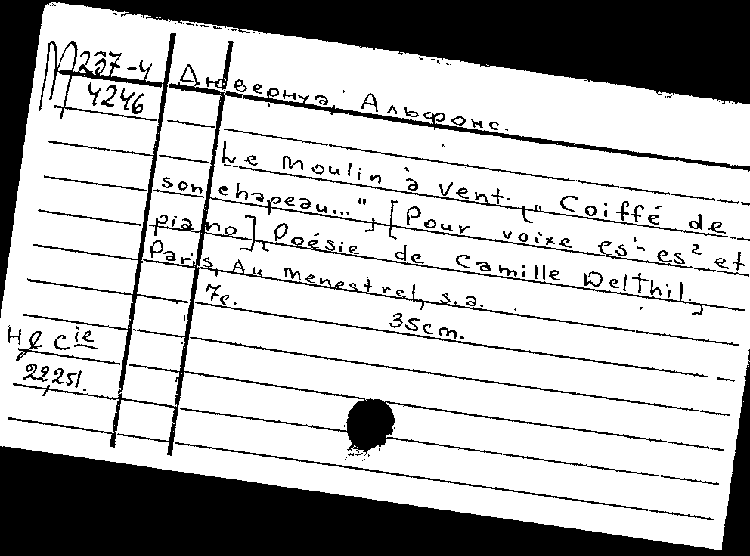 М 237-4
4246
Дювернуа, Альфонс.
Le moulin à vent. „Coiffé de
son chapeau..." [Pour voixe es¹-es² et
piano]. Poésie de Camille Delthil.
Paris, Au menestrel, s.a.
7c. 35cm.
H & Cie
22,251.